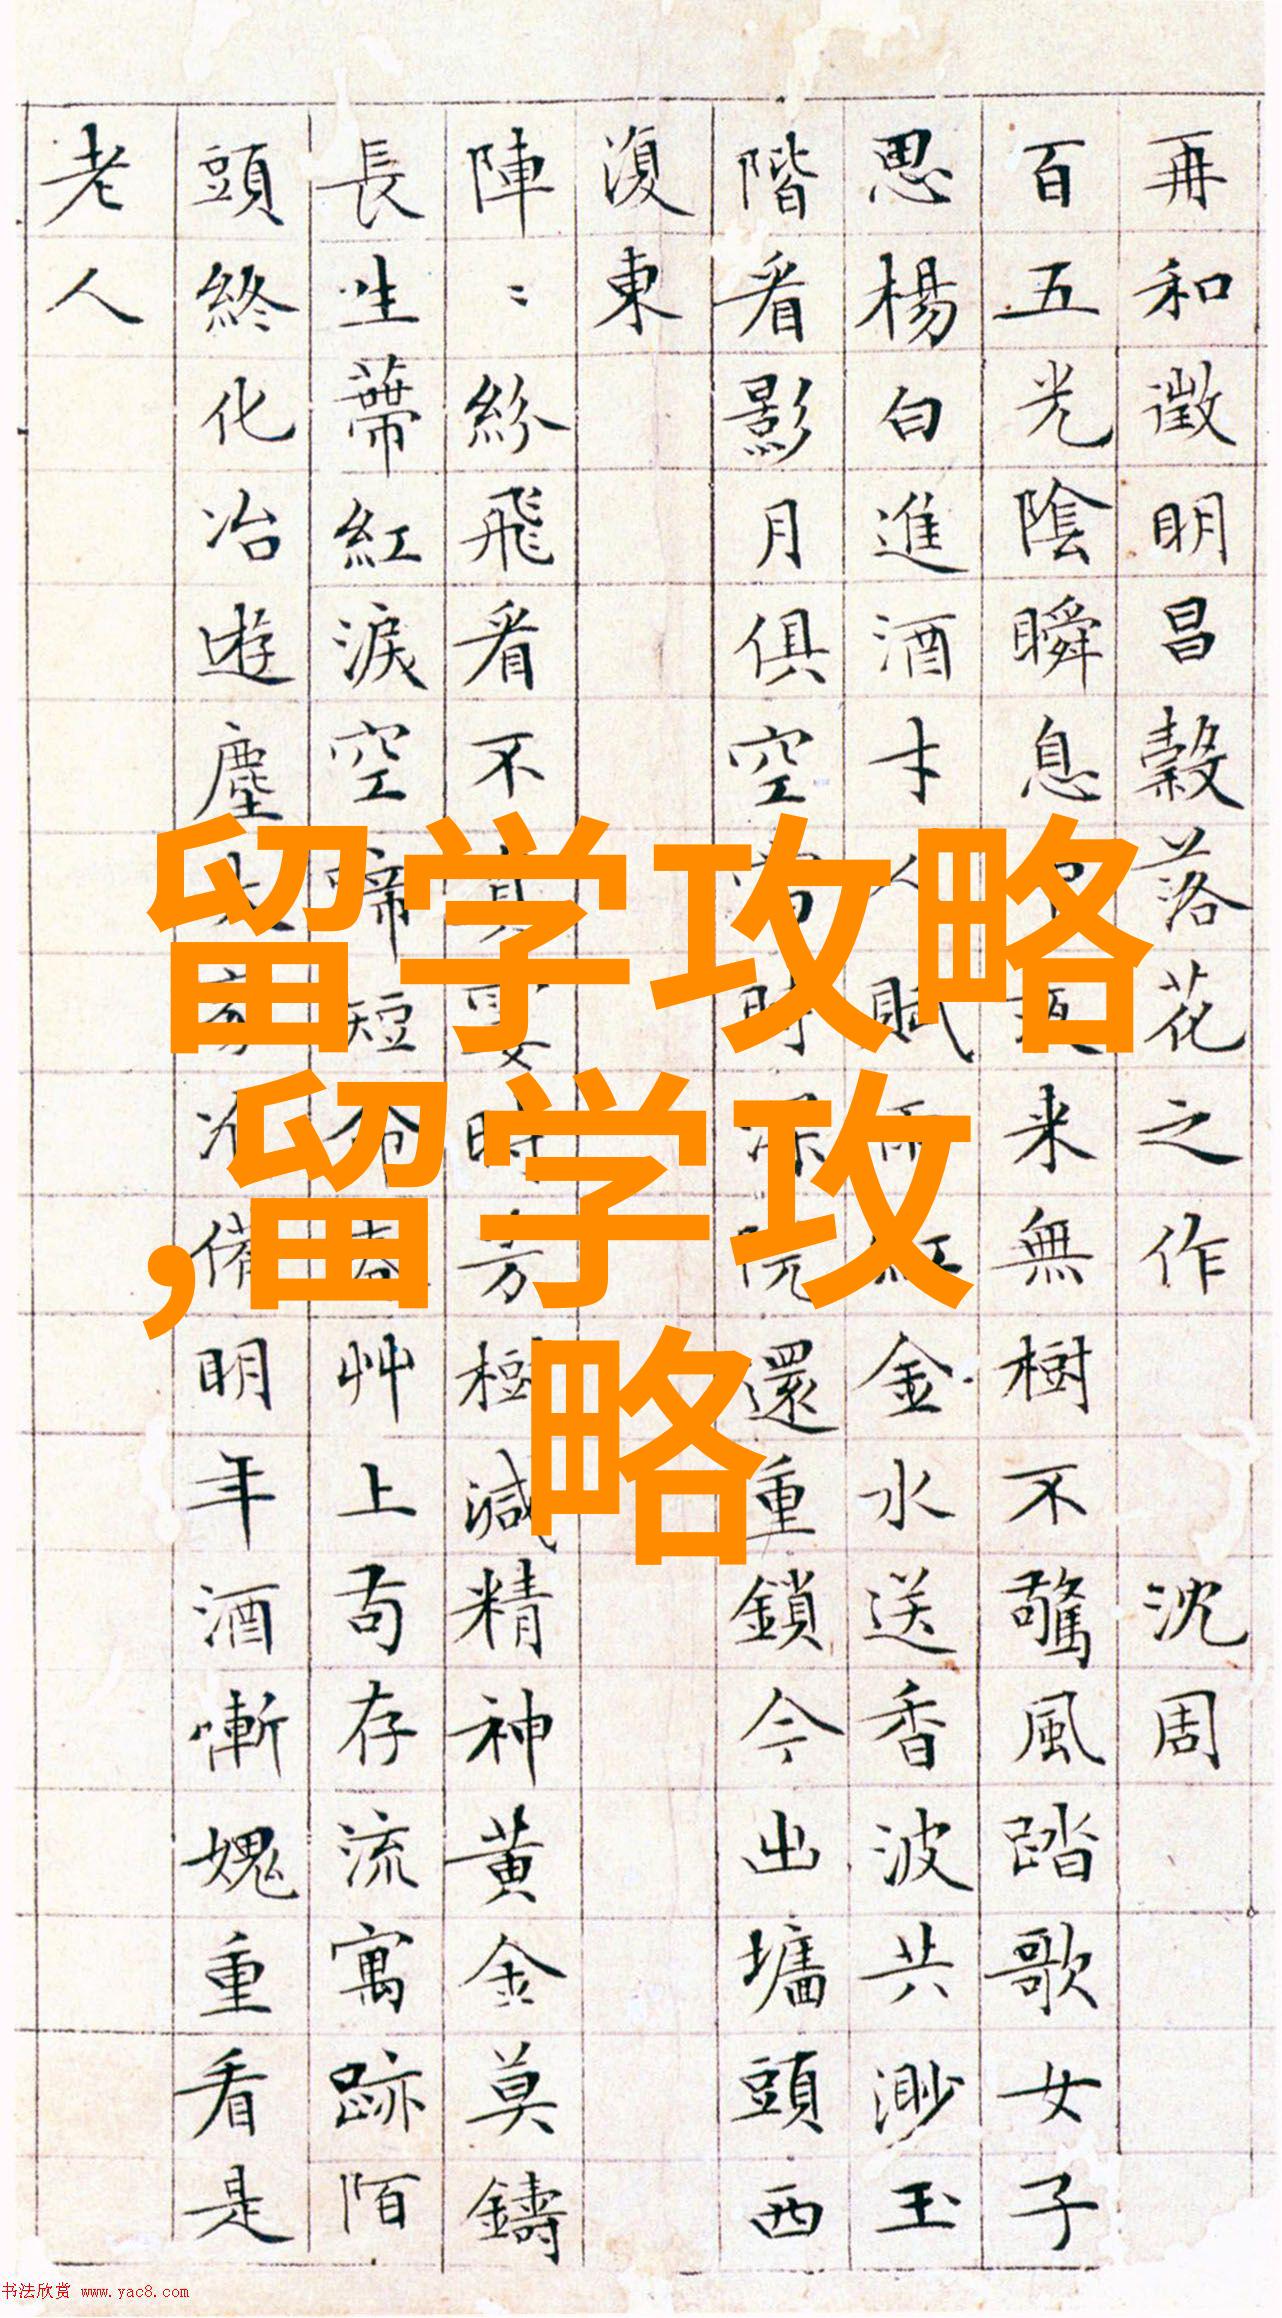 再和徵明昌穀落花之作 沈周
百五光陰瞬息来無樹不驚風踏歌女子
思楊白進酒才人賦紅金水送香波共渺玉
階看影月俱空當時深院還重鎖今出墻頭西
復東
陣〻紛飛看不真霎時芳樹減精神黃金莫鑄
長生蔕紅淚空啼短命春艸上苟存流寓跡陌
頭終化冶遊塵大家准俻明年酒慚媿重看是
老人
留学攻略
,留学攻
略
书法欣赏 www.yac8.com